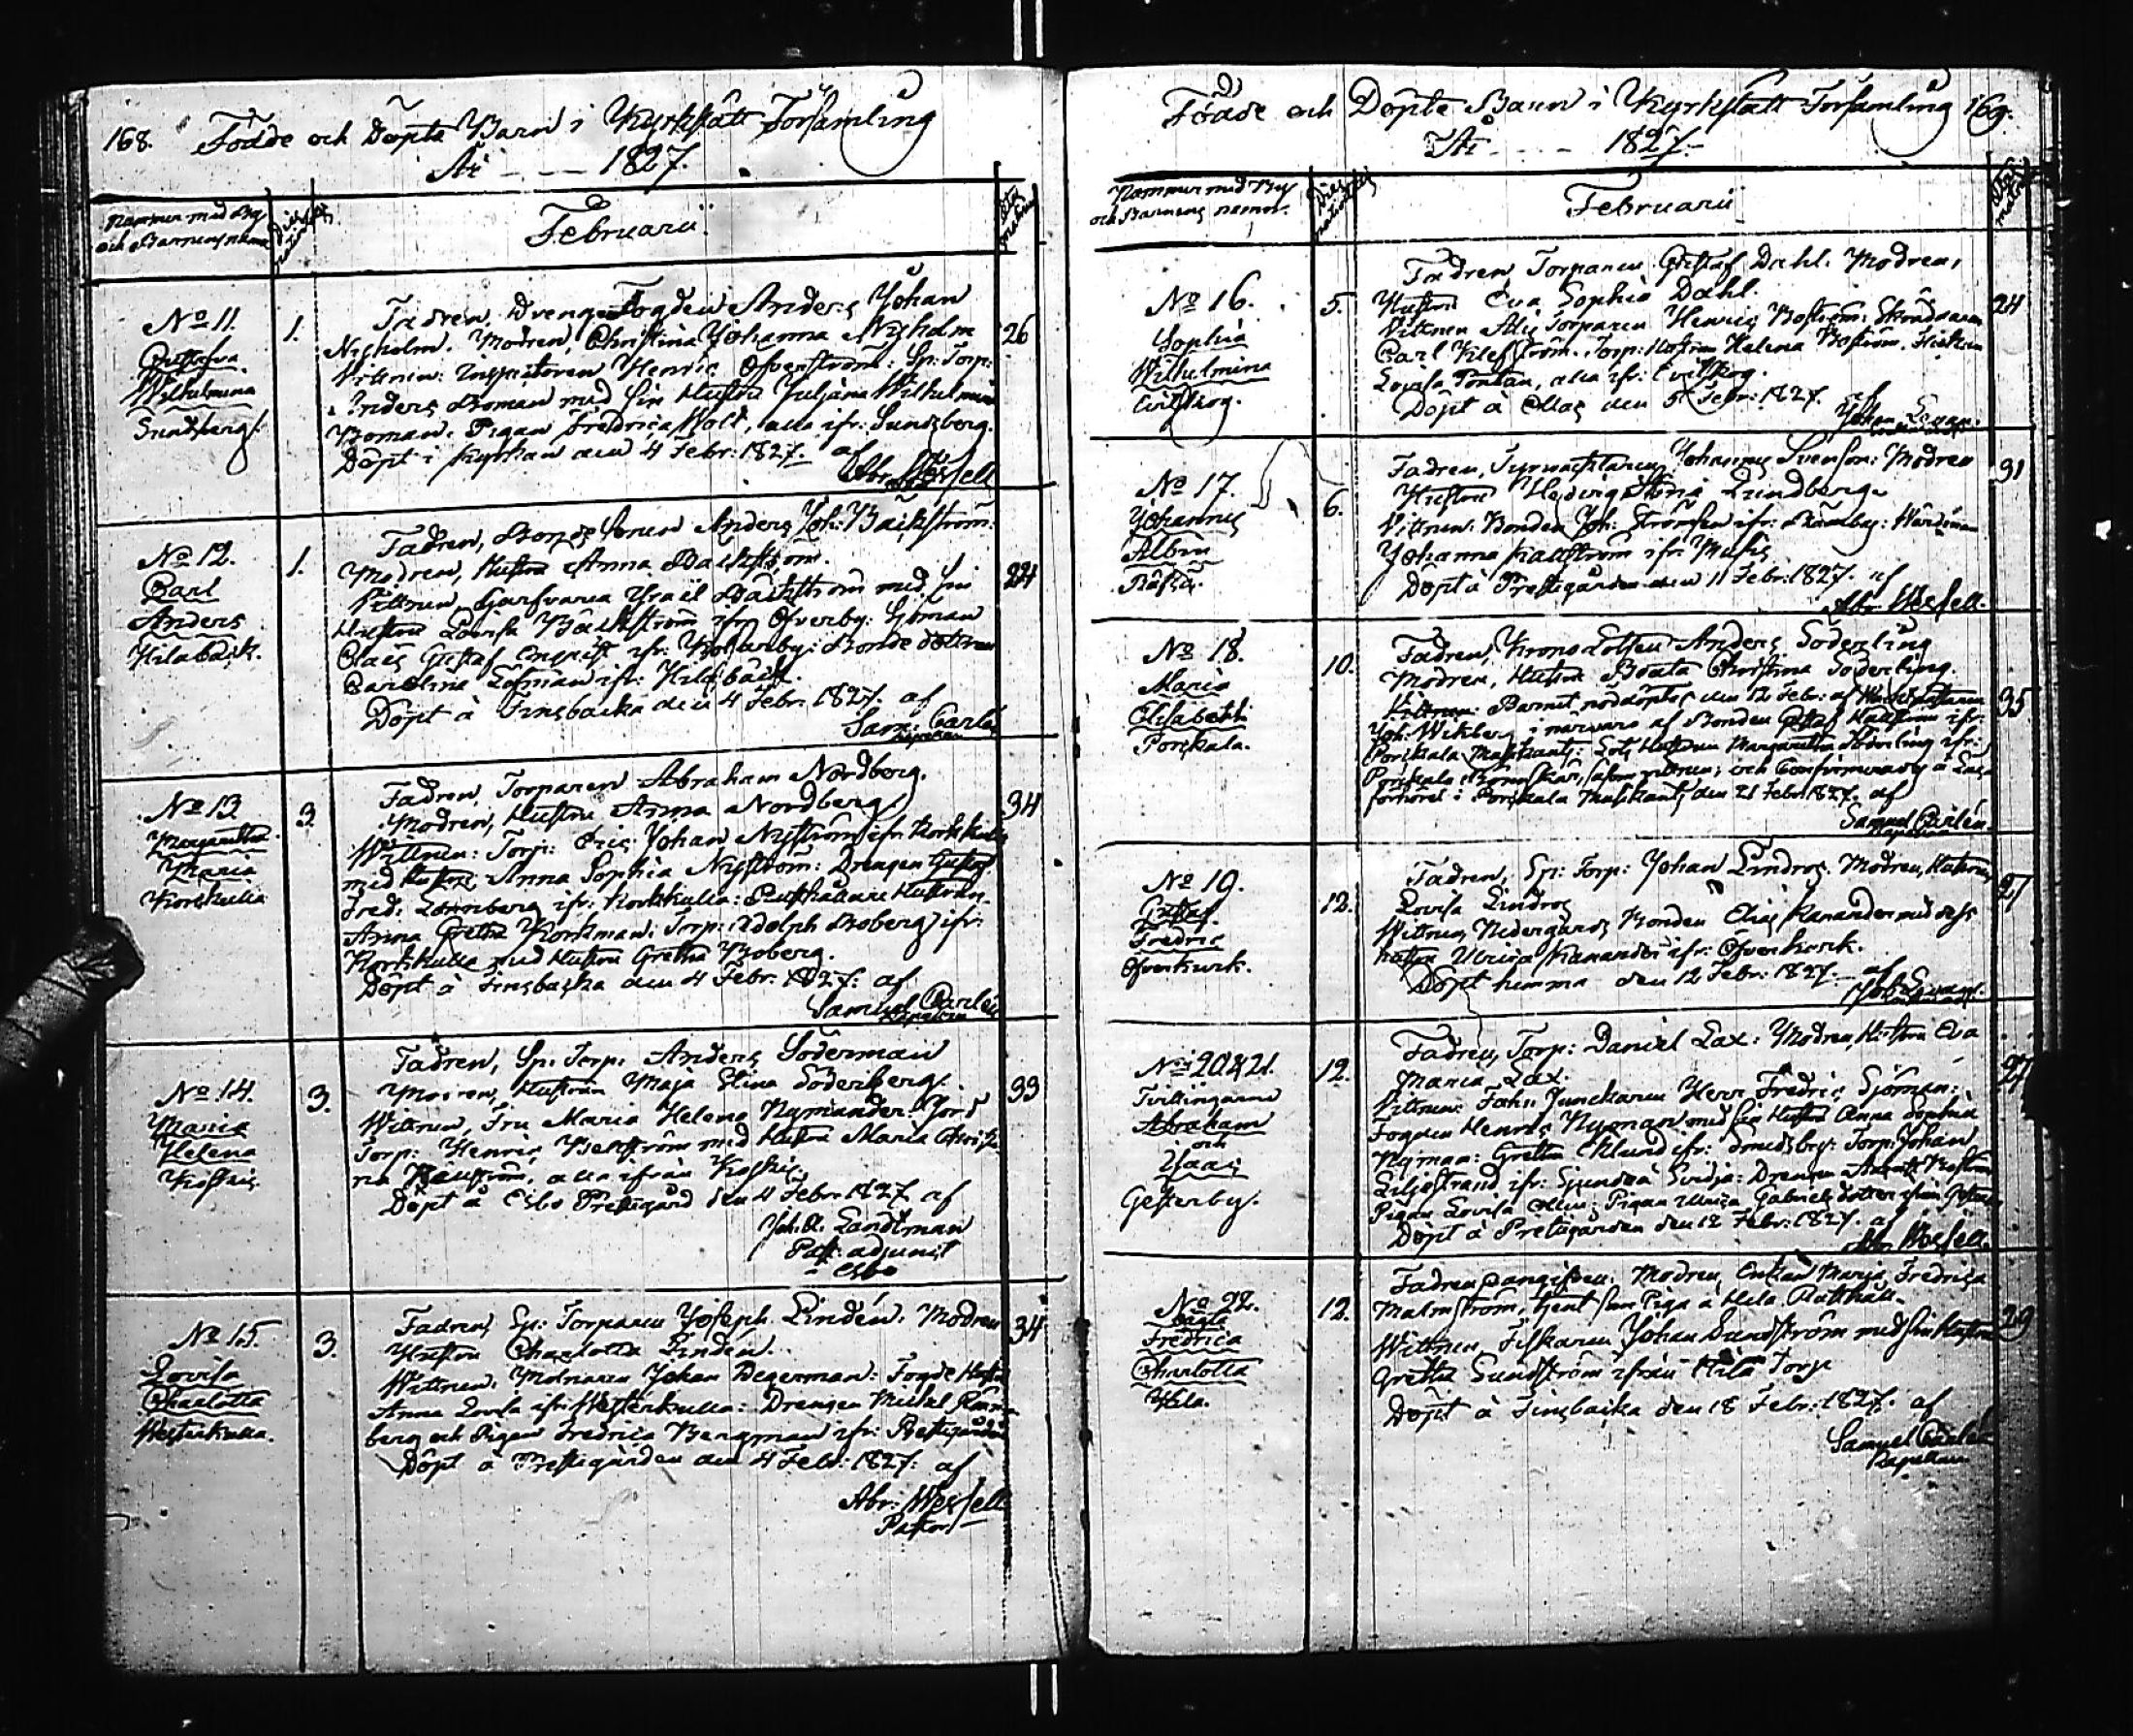 168. Födde och Döpta Barn i Kyrkslätt Församling
År - - - 1827.
Nammer med By
och Barnens namn
Februarii
No 11.
Gustafva
Wilhelmina
Sundsberg.
1.
Fadren, Drenge Fogden Anders Johan
Nyholm. Modren, Christina Johanna Nyholm
Vittnen: Inspectoren Henric Öfverström: Sp: Torp:
Anders Boman med sin Hustru Juliana Wilhelmina
Boman. Pigan Fredrica Holt, alla ifr: Sundsberg.
Döpt i Kyrkan den 4 Febr: 1827. af
Abr: Wessell
26
No 12.
Carl
Anders
Hilabäck.
1.
Fadren, Bonde Sonen Anders Joh: Bäckström:
Modren, Hustru Anna Bäckström.
Vittnen, Garfvaren Israel Bäckström med sin
Hustru Lovisa Bäckström ifr: Öfverby: Sjöman
Claës Gustaf Enqvist ifr: Bonde dottren
Carolina Löfman ifr: Hilabäck.
Döpt å Finsbacka den 4 Febr: 1827. af
Sam: Carlén
Kapellan
24
No 13.
Margaretha
Maria
Korskulla
3.
Fadren, Torparen Abraham Nordberg.
Modren, Hustru Anna Nordberg.
Wittnen: Torp: Eric Johan Nyström ifr: Korskulla
med Hustru Anna Sophia Nyström: Drengen Gustaf
Fred: ifr: Korskulla: Rusthållare Hustrun
Anna Gretha Korkman: Torp: Adolph Broberg ifr:
Korskulla med Hustru Gretha Broberg.
Döpt å Finsbacka den 4 Febr: 1827: af
Samuel Carlén
Kapellan
34
No 14.
Maria
Helena
Koskis.
3.
Fadren, Sp: Torp: Anders Söderman
Modren, Hustrun Maja Stina Söderberg.
Wittnen, Fru Maria Helena Nymander: Jord
Torp: Henric med Hustru Maria Christi
na alla ifrån Koskis.
Döpt å Esbo Prestegård den 4 Febr: 1827 af
Joh. A. Sandtman
Past: adjunct
Esbo
33
No 15.
Lovisa
Charlotta
Westerkulla.
3.
Fadren, Sp: Torparen Joseph Lindén. Modren
Hustru Charlotta Lindén.
Wittnen. Molnaren Johan Degerman: Fogde Hustru
Anna Lovisa ifr: Westerkulla: Drengen Michel
berg och Pigan Fredrica Bergman ifr: Prestegården
Döpt å Prestegården den 4 Febr: 1827: af
Abr: Wessell
Pastor
34
Födde och Döpte Barn i Kyrkslätt Församling 169.
År - - - 1827.
Nammer med By
och Barnens namn.
Februarii
No 16.
Sophia
Wilhelmina
Evitskog.
5.
Fadren, Torparen Gustaf Dahl. Modren,
Hustru Eva Sophia Dahl.
Vittnen Torparen Henric Boström: Skräddaren
Carl Klefström. Torp: Hustrun Helena Boström.
Lovisa Pontan, alla ifr: Evitskog.
Döpt å Ollas den 5 Febr: 1827. af
24
No 17.
Johannes
Albin
6.
Fadren, Johannes Svenson: Modren
Hustru Hedvig Stina Lundberg.
Vittnen: Bonden Joh: Strömsten ifr:
Johanna Källström ifr:
Döpt å Prestegården den 11 Febr: 1827. af
Abr: Wessell.
31
No 18.
Maria
Elisabeth
Porkala.
10.
Fadren, Krono Lotsen Anders Söderling
Modren, Hustru Beata Christina Söderling.
Vittnen: Barnet nöddöptes den 12 Febr: af
Joh: Wikberg i närvaro af Bonden Gustaf Källström ifr:
Porkala Lots Hustrun Margaretha Söderling ifr:
Porkala Rönnskär, såsom vittnen; och Confirmerades å Läse
förhöret i Porkala den 21 Febr: 1827. af
Samuel Carlén
Kapellan
35
No 19.
Gustaf
Fredric
Öfverkurk.
12.
Fadren, Sp: Torp: Johan Lindros. Modren, Hustru
Lovisa Lindros
Wittnen, Nedergårds Bonden Elias Kanander med dess
hustru Ulrica Kanander ifr: Öfverkurk.
Döpt hemma den 12 Febr: 1827. af
27
No: 20 & 21.
Tvillingarne
Abraham
och
Isaac
Gesterby.
12.
Fadren, Torp: Daniel Lax: Modren, Hustru Eva
Maria Lax:
Vittnen: Junckaren Herr Fredric Sjöman:
Fogden Henric Nyman med sin Hustru Anna Sophia
Nyman: Gretha Eklund ifr: Smedsby: Torp: Johan
Liljestrand ifr: Sjundeå Svidja: Drengen Boström
Pigan Lovisa Pigan Ulrica Gabriels dotter ifrån Gesterby
Döpt å Prestegården den 12 Febr: 1827. af
Abr: Wessell.
27
No 22.
oägta
Fredrica
Charlotta
Hila.
12.
Fadren, oangifven. Modren, Enkan Maria Fredrica
Malmström, tjent som Piga å Hila Rusthåll.
Wittnen, Fiskaren Johan Sundström med sin Hustru
Gretha Sundström ifrån Hila Torp
Döpt å Finsbacka den 18 Febr: 1827. af
Samuel Carlén
Kapellan
29